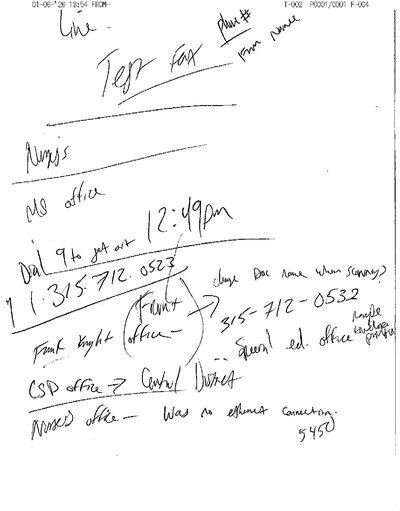 01-06-'26 18:54 FROM-
T-002 P0001/0001 F-004
Line -
phone #
From name
Test Fax
MS office
12:49pm
Dial 9 to get out
1-315-712-0523
Front
office -
change Doc name when scanning?
315-712-0532
Front
Special ed. office
CSD office → Central District
Nurse's office - Was no ethernet connection.
5450